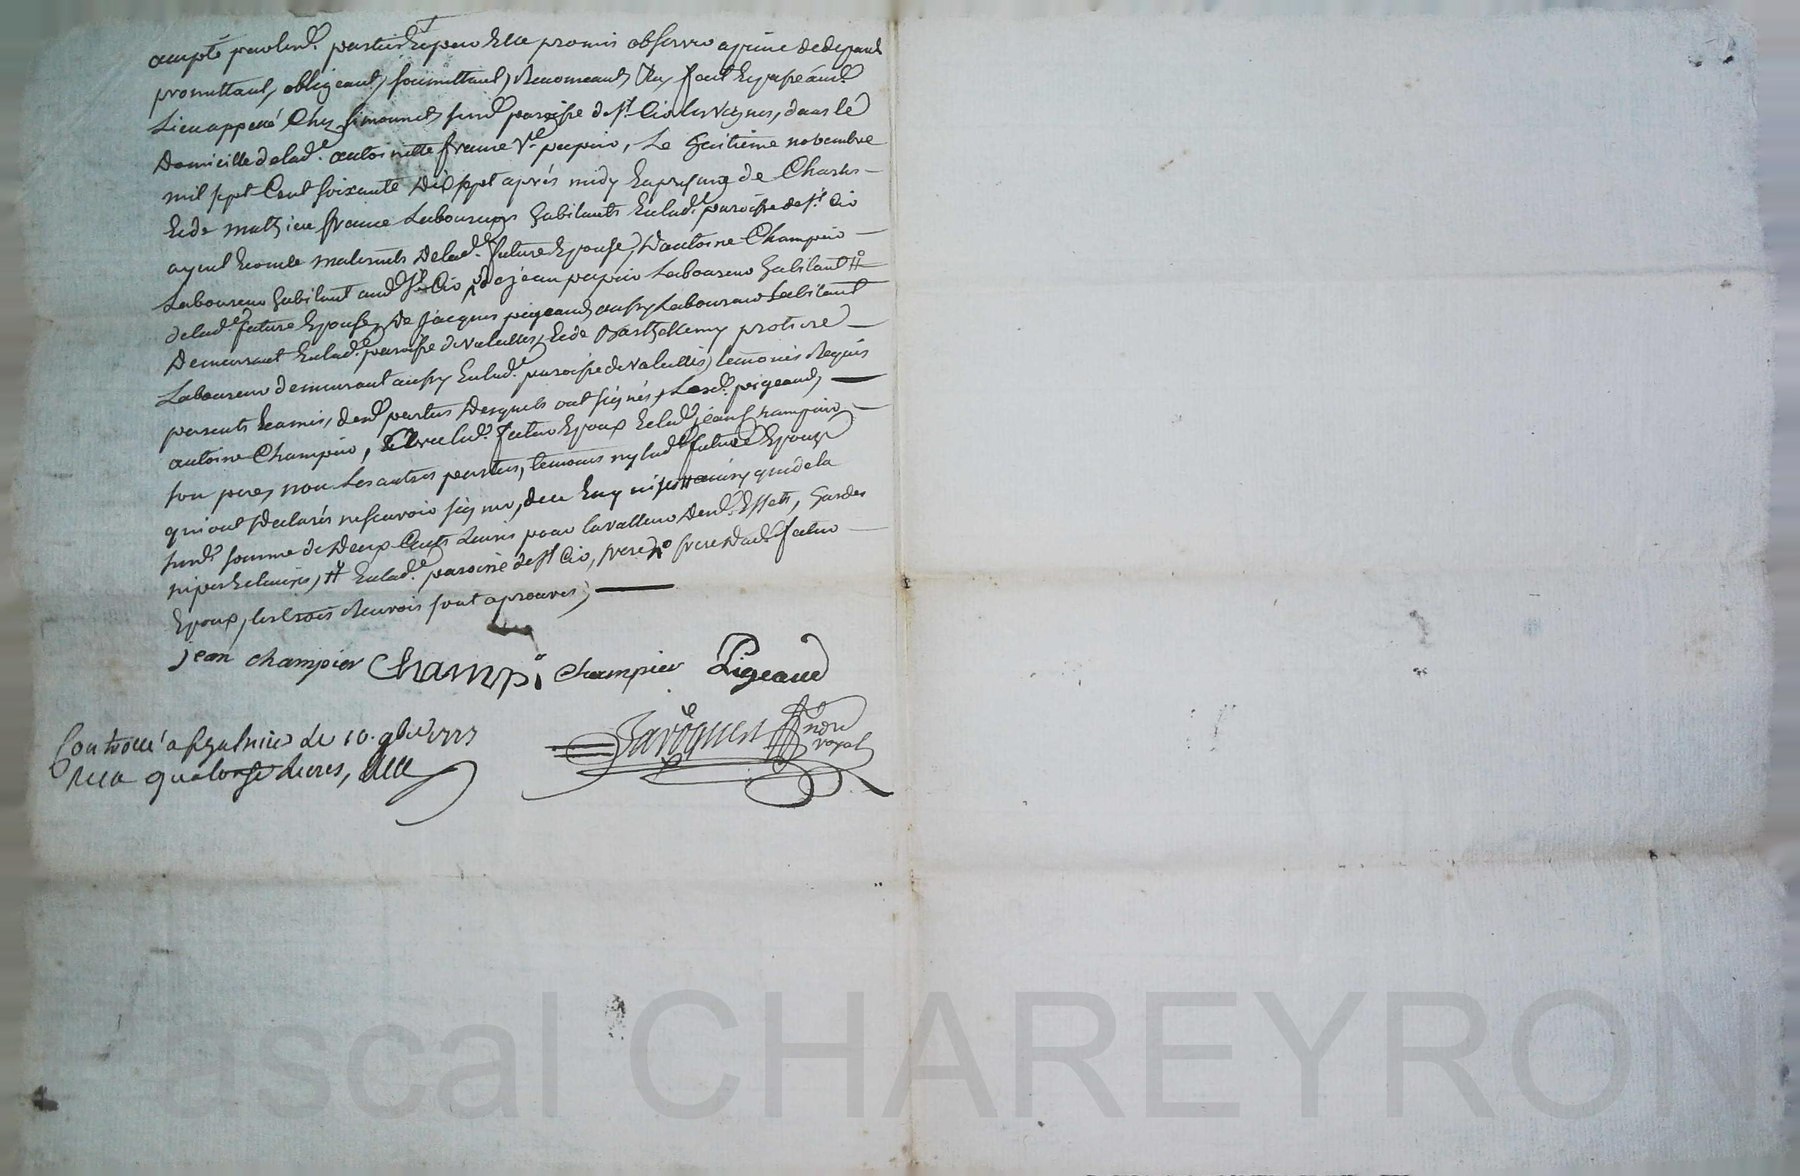 accepté par lesd. parties Et par Elle promis observer a peine de depant
promettant, obligeant, soumettant, Renonceant, &c, fait Et passé aud.
Lieu appellé Chez simonnet susd. paroisse de st. Cir les vignes, dans le
Domicille de lad. antoinette france Ve. papier, Le huitieme novembre
mil sept Cent soixante Dix sept après midy En presence de Charles
Et de mathieu france Laboureurs habitants En lad. paroisse de st. Cir
ayeul Et oncle maternels de lad. future Epouse, D'antoine Champier
Laboureur habitant aud. st. Cir, de jean papier Laboureur habitant #
de lad. future Epouse, De Jacques pigeaud aussy Laboureur habitant
Demeurant En lad. paroisse de valeilles, Et de Barthellemy protiere
Laboureur demeurant aussy En lad. paroisse de valeilles, temoins Requis
parents Et amis, desd. parties Desquels ont signés, Lesd. pigeaud,
antoine Champier, led. futur Epoux Et led. jean Champier
son pere, non Les autres parties, temoins ny lad. future Epouse
qui ont Declarés ne scavoir signer, de ce Enquis ainsy que de la
susd. somme de Deux Cents Livres pour la valleur desd. Effets, hardes
nipes Et linges, # En lad. paroisse de st. Cir, frere frere dud. futur
Epoux, les trois Renvois sont aprouvés,
jean champier Champi champier Pigeaud
Controllé a feurs le 10. 9bre 1777
Reçu quatorze livres,
nore royal
Pascal CHAREYRON